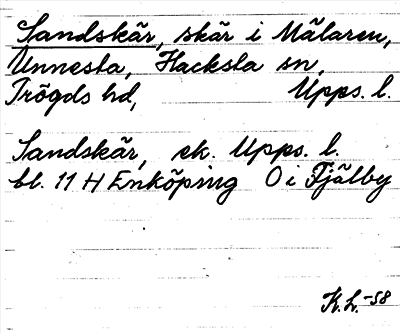 Sandskär, skär i Mälaren,
Unnesta, Hacksta sn,
Trögds hd, Upps. l.
Sandskär, ek. Upps. l.
bl. 11 H Enköping O i Fjälby
K.L. -58